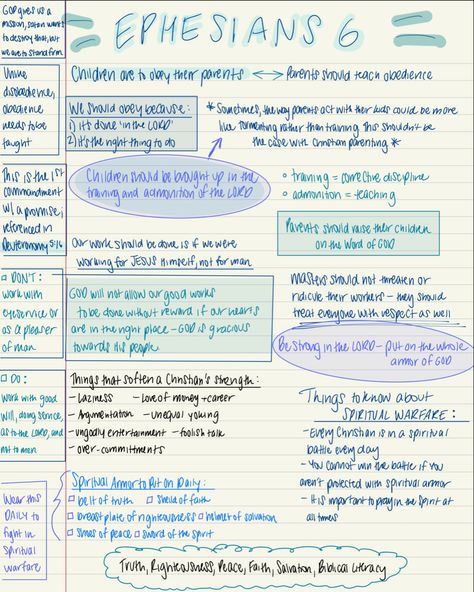 EPHESIANS 6
GOD gives us a
mission, satan wants
to destroy that, but
we are to stand firm
Unlike
disobedience,
obedience
needs to be
taught
This is the 1st
commandment
w/ a promise,
referenced in
Deuteronomy 5:16
□ DON'T:
work with
eyeservice or
as a pleaser
of man
□ DO:
Work with good
will, doing service,
as to the LORD, and
not to men
Wear this
DAILY to
fight in
spiritual
warfare
Children are to obey their parents ↔ Parents should teach obedience
We should obey because:
1) it's done 'in the LORD'
2) it's the right thing to do
* Sometimes, the way parents act with their kids could be more
like tormenting rather than training. This shouldn't be
the case with Christian parenting *
Children should be brought up in the
training and admonition of the LORD
◦ training = corrective discipline
◦ admonition = teaching
Parents should raise their children
on the Word of GOD
Our work should be done is if we were
working for JESUS Himself, not for man
GOD will not allow our good works
to be done without reward if our hearts
are in the right place – GOD is gracious
towards His people
Masters should not threaten or
ridicule their workers – they should
treat everyone with respect as well
Be strong in the LORD – put on the whole
armor of GOD
Things that soften a Christian's strength:
– Laziness – Love of money + career
– Argumentation – unequal yoking
– ungodly entertainment – foolish talk
– over-commitments
Things to know about
SPIRITUAL WARFARE:
– Every Christian is in a spiritual
battle every day
– You cannot win the battle if you
aren't protected with spiritual armor
– It is important to pray in the Spirit at
all times
Spiritual Armor to Put on Daily:
□ belt of truth □ shield of faith
□ breast plate of righteousness □ helmet of salvation
□ shoes of peace □ sword of the spirit
Truth, Righteousness, Peace, Faith, Salvation, Biblical Literacy